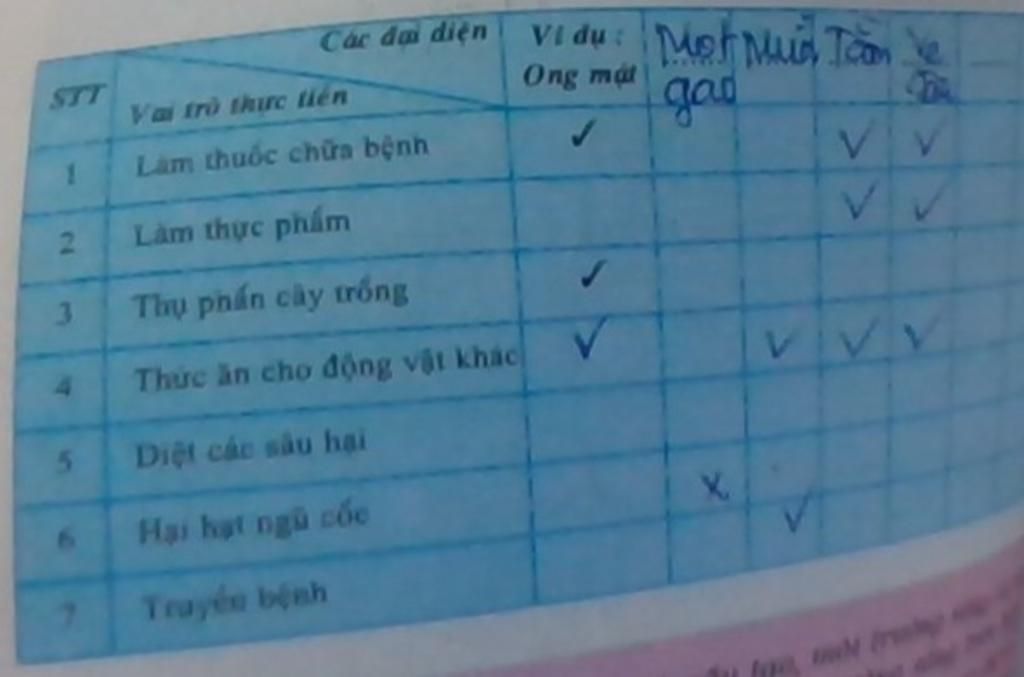 Các đại diện Ví dụ : Mọt Muỗi Tằm Ve
STT Vai trò thực tiễn Ong mật gạo
1 Làm thuốc chữa bệnh ✓ V V
2 Làm thực phẩm V V
3 Thụ phấn cây trồng ✓
4 Thức ăn cho động vật khác V V V V
5 Diệt các sâu hại
6 Hại hạt ngũ cốc X
7 Truyền bệnh V